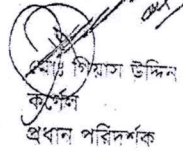 মোঃ গিয়াস উদ্দিন
কর্ণেল
প্রধান পরিদর্শক